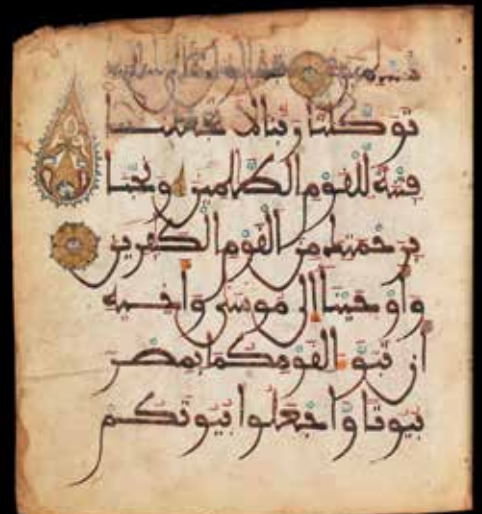 تَوَكَّلْنَا رَبَّنَا لَا تَجْعَلْنَا
فِتْنَةً لِّلْقَوْمِ الظَّٰلِمِينَ وَنَجِّنَا
بِرَحْمَتِكَ مِنَ الْقَوْمِ الْكَٰفِرِينَ
وَأَوْحَيْنَا إِلَىٰ مُوسَىٰ وَأَخِيهِ
أَن تَبَوَّءَا لِقَوْمِكُمَا بِمِصْرَ
بُيُوتًا وَاجْعَلُوا بُيُوتَكُمْ